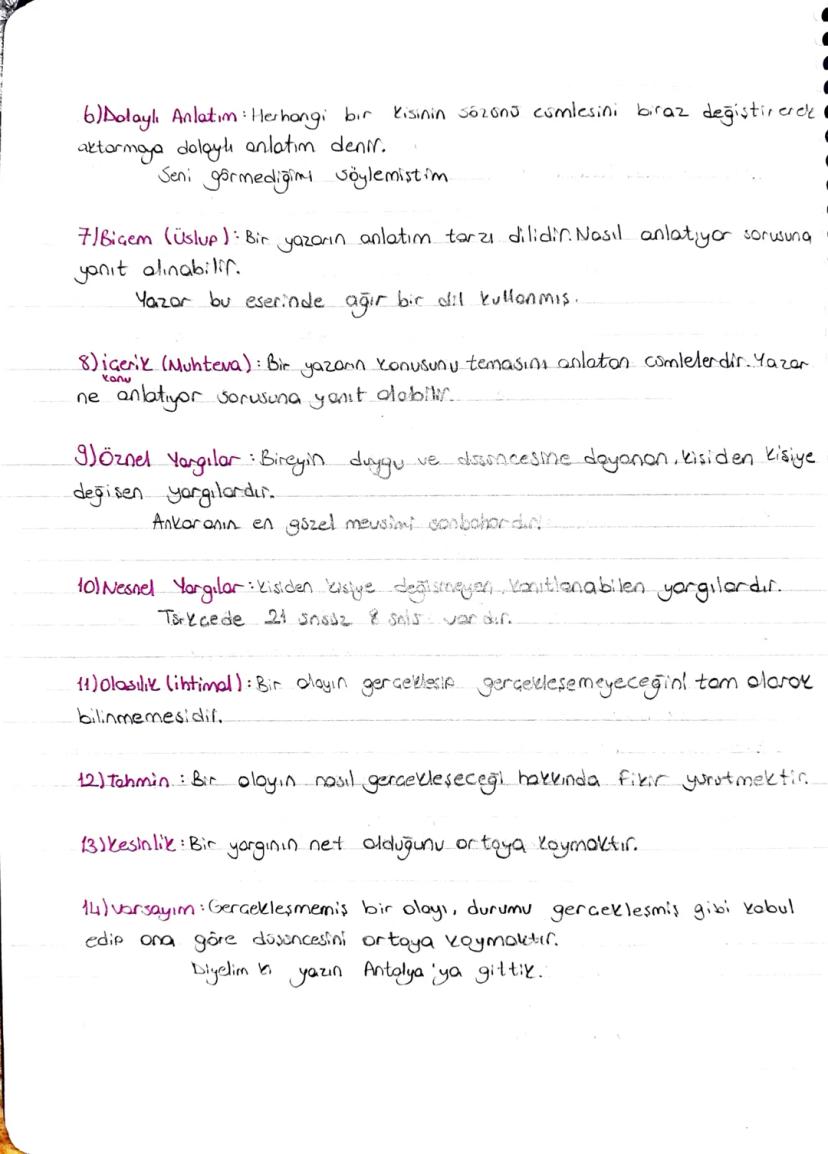 6) Dolaylı Anlatım : Herhangi bir kişinin sözünü cümlesini biraz değiştirerek
aktarmaya dolaylı anlatım denir.
Seni görmediğimi söylemiştim
7) Biçem (Üslup) : Bir yazarın anlatım tarzı dilidir. Nasıl anlatıyor sorusuna
yanıt alınabilir.
Yazar bu eserinde ağır bir dil kullanmış.
8) içerik (Muhteva) : Bir yazarın konusunu temasını anlatan cümlelerdir. Yazar
konu
ne anlatıyor sorusuna yanıt olabilir.
9) Öznel Yargılar : Bireyin duygu ve düşüncesine dayanan, kişiden kişiye
değişen yargılardır.
Ankaranın en güzel mevsimi sonbahardır.
10) Nesnel Yargılar : kişiden kişiye değişmeyen, kanıtlanabilen yargılardır.
Türkçede 21 ünsüz 8 ünlü vardır.
11) Olasılık (ihtimal) : Bir olayın gerçekleşip gerçekleşemeyeceğini tam olarak
bilinmemesidir.
12) Tahmin : Bir olayın nasıl gerçekleşeceği hakkında fikir yürütmektir.
13) Kesinlik : Bir yargının net olduğunu ortaya koymaktır.
14) Varsayım : Gerçekleşmemiş bir olayı, durumu gerçekleşmiş gibi kabul
edip ona göre düşüncesini ortaya koymaktır.
Diyelim ki yazın Antalya'ya gittik.